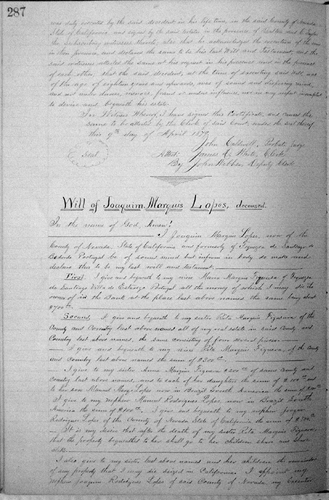 287
was duly executed by the said decedent in his life time, in the said County of Nevada,
State of California, and signed by the said testator in the presence of
the subscribing witnesses thereto. Also that he acknowledged the execution of the
in their presence, and declared the same to be his last Will and Testament, and the said
witnesses attested the same at his request in his presence, and in the presence
of each other. That the said decedent, at the time of executing said Will, was
of the age of eighteen years and upwards, was of sound and disposing mind,
and not under duress, menace, fraud or undue influence, nor in any respect incompetent
to devise and bequeath his estate.
In Witness Whereof, I have signed this Certificate, and caused the
same to be attested by the Clerk of said Court, under the seal thereof,
this 9th day of April 1879
John Caldwell, Probate Judge
Seal Attest: James Clerk
By John Deputy Clerk
Will of Joaquim Marques Lopes, deceased.
In the name of God, Amen!
I Joaquim Marques Lopes now of the
County of Nevada State of California and formerly of de Santiago de
Portugal be of sound mind but infirm in body do make and
declare this to be my last will and testament.
First: I give and bequeath to my Maria Marques of
de Santiago Villa de Portugal all the money of which I may die the
owner of in the Bank at the place last above named the same being about
Second: I give and bequeath to my sister Rita Marques of the
County and Country last above named all of my real estate in said County and
Country last above named, the same consisting of four pieces
I give and bequeath to my sister Rita Marques of the County
and Country last above named the sum of
I give to my sister Marques of same county and
Country last above named, and to each of her daughters the sum of and
to her son Manuel Lopes now in Brazil South America the sum of
I give to my nephew Manuel Rodrigues Lopes now in Brazil South
America the sum of I give and bequeath to my nephew Joaquim
Rodrigues Lopes of the County of Nevada State of California the sum of
It is my desire that after the death of my sister Rita Marques
that the property bequeathed to her shall go to her children share and share
alike.
I also give to my sister last above named and her children the remainder
of any property that I may die seized in California. I appoint my
nephew Joaquim Rodrigues Lopes of said County of Nevada my Executor